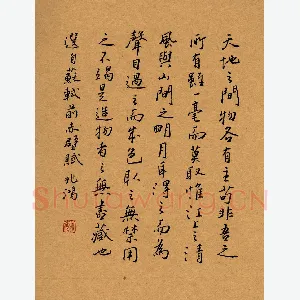 天地之間物各有主苟非吾之
所有雖一毫而莫取惟江上之清
風與山間之明月耳得之而為
聲目遇之而成色取之無禁用
之不竭是造物者之無盡藏也
選自蘇軾前赤壁賦兆鴻